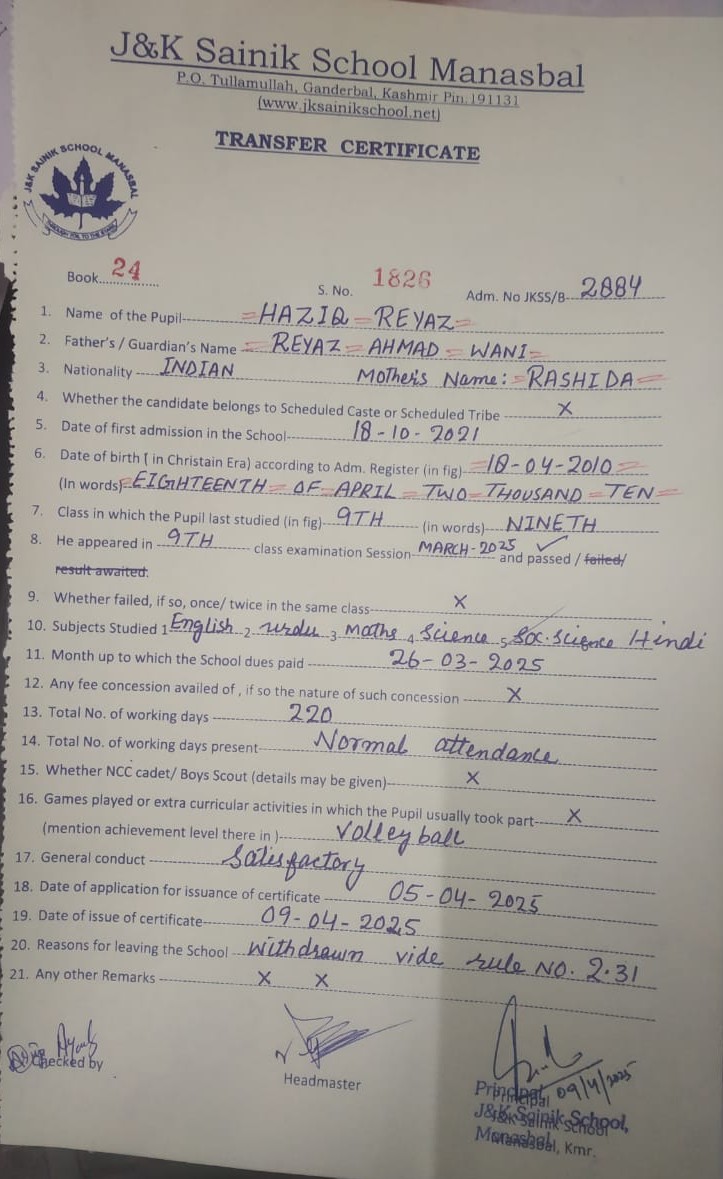 J&K Sainik School Manasbal
P.O. Tullamullah, Ganderbal, Kashmir Pin.191131
(www.jksainikschool.net)
TRANSFER CERTIFICATE
J&K SAINIK SCHOOL MANASBAL
Book 24 S. No. 1826 Adm. No JKSS/B 2884
1. Name of the Pupil = HAZIQ = REYAZ =
2. Father's / Guardian's Name = REYAZ = AHMAD = WANI =
3. Nationality INDIAN Mother's Name: = RASHIDA =
4. Whether the candidate belongs to Scheduled Caste or Scheduled Tribe X
5. Date of first admission in the School 18-10-2021
6. Date of birth ( in Christain Era) according to Adm. Register (in fig) = 18-04-2010 =
(In words) = EIGHTEENTH = OF = APRIL = TWO = THOUSAND = TEN =
7. Class in which the Pupil last studied (in fig) 9TH (in words) NINETH
8. He appeared in 9TH class examination Session MARCH-2025 and passed / failed/
result awaited.
9. Whether failed, if so, once/ twice in the same class X
10. Subjects Studied 1 English 2 urdu 3 Maths 4 Science 5 Soc. science Hindi
11. Month up to which the School dues paid 26-03-2025
12. Any fee concession availed of , if so the nature of such concession X
13. Total No. of working days 220
14. Total No. of working days present Normal attendance
15. Whether NCC cadet/ Boys Scout (details may be given) X
16. Games played or extra curricular activities in which the Pupil usually took part X
(mention achievement level there in ) Volleyball
17. General conduct Satisfactory
18. Date of application for issuance of certificate 05-04-2025
19. Date of issue of certificate 09-04-2025
20. Reasons for leaving the School Withdrawn vide rule NO. 2.31
21. Any other Remarks X X
Checked by
Headmaster
09/4/2025
Principal
J&K Sainik School,
Manasbal, Kmr.